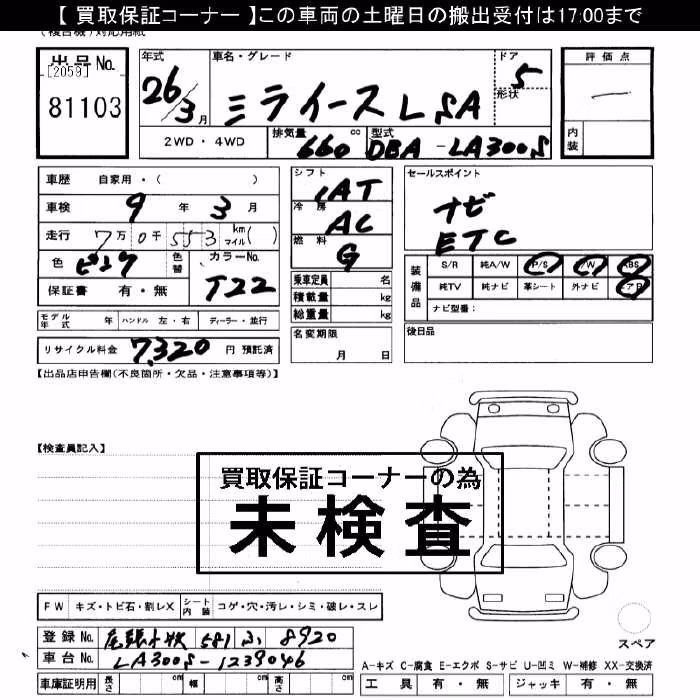 【 買取保証コーナー 】この車両の土曜日の搬出受付は17:00まで
(複合機)対応用紙
出品No.
[2059]
81103
年式
26/3月
車名・グレード
ミライース L SA
ドア
5
形状
評価点
内装
2WD・4WD
排気量 660 cc
型式 DBA-LA300S
車歴 自家用・( )
車検 9年3月
走行 7万0千553 km マイル( )
色 ピンク
色替
カラーNo.
T22
保証書 有・無
シフト
IAT
冷房
AC
燃料
G
乗車定員 名
積載量 kg
総重量 kg
セールスポイント
ナビ
ETC
装備品
S/R 純A/W P/S P/W ABS
純TV 純ナビ 革シート 外ナビ エアB
ナビ型番：
モデル年式 年 ハンドル 左・右 ディーラー・並行
名変期限
月 日
後日品
リサイクル料金 7,320 円 預託済
【出品店申告欄(不良箇所・欠品・注意事項等)】
【検査員記入】
買取保証コーナーの為
未検査
FW キズ・トビ石・割レX
シート内装 コゲ・穴・汚レ・シミ・破レ・スレ
スペア
登録No. 尾張小牧 581 ふ 8920
車台No. LA300S-1239046
A-キズ C-腐食 E-エクボ S-サビ U-凹ミ W-補修 XX-交換済
車庫証明用 長さ cm 幅 cm 高さ cm
工具 有・無 ジャッキ 有・無